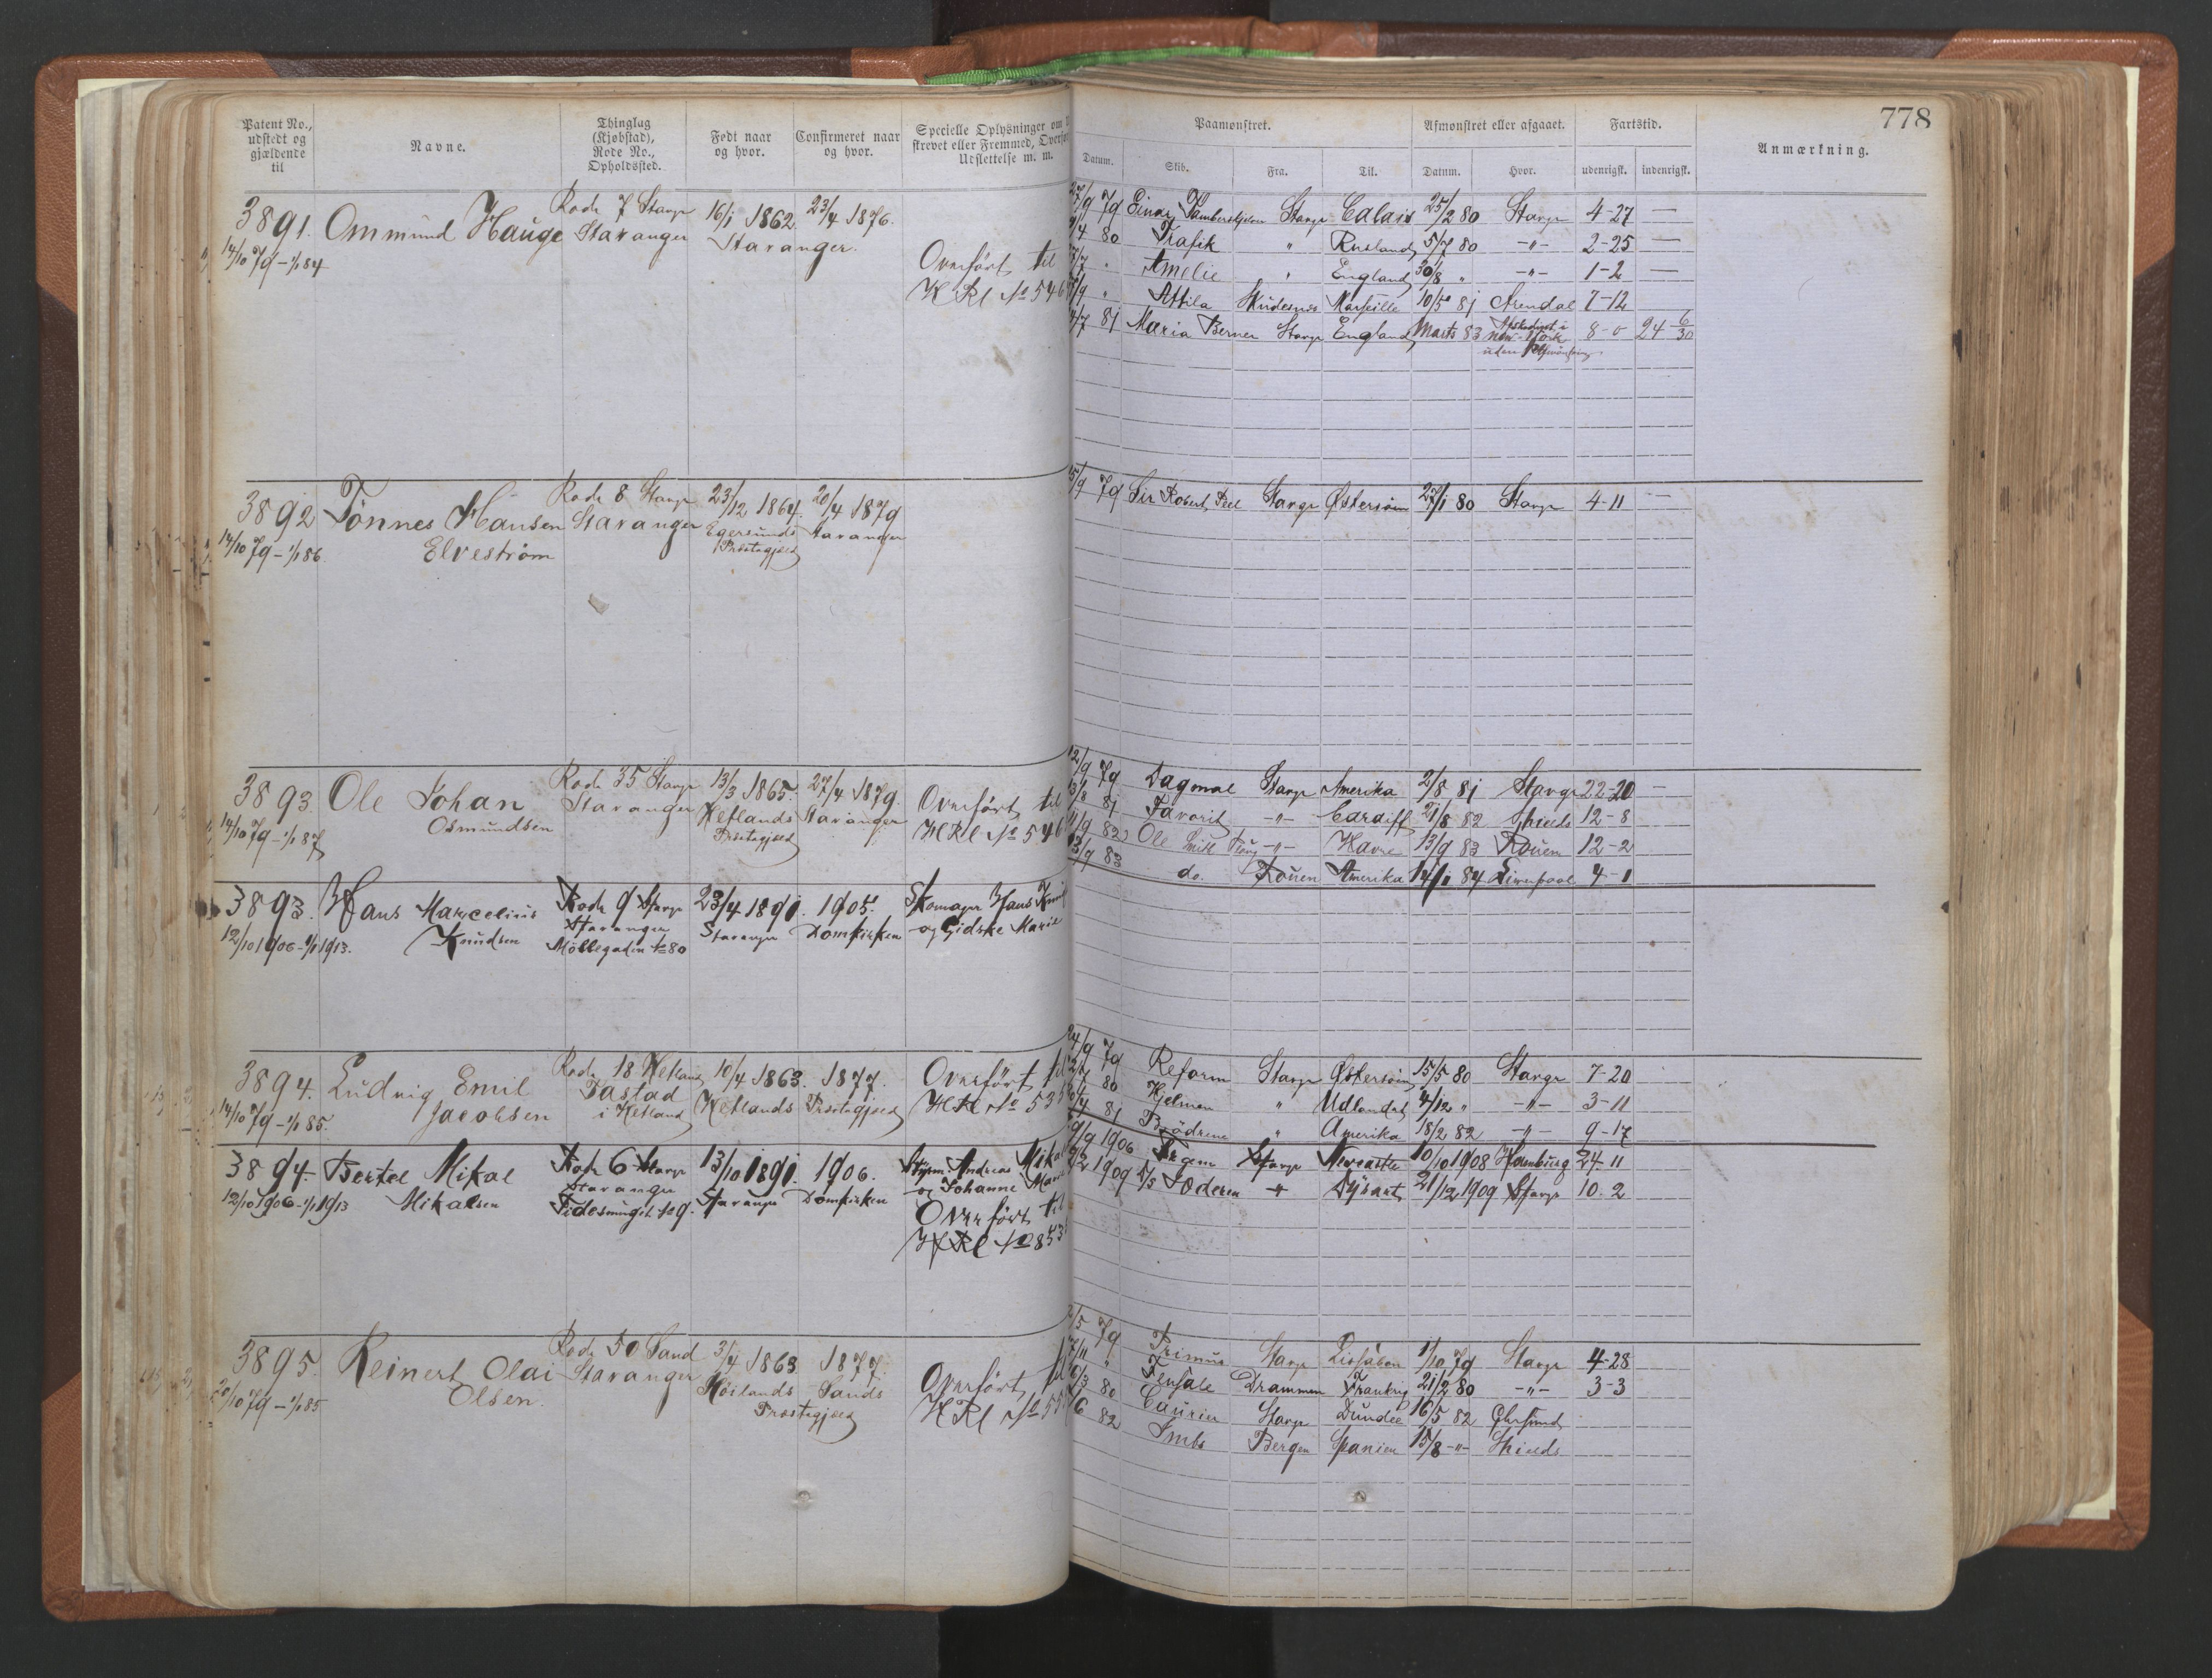 778
Patent No., udstedt og gjældende til
Navne.
Thinglag (Kjøbstad), Rode No., Opholdssted.
Født naar og hvor.
Confirmeret naar og hvor.
Specielle Oplysninger om
skrevet eller Fremmed, Overført
Udslettelse m. m.
Paamønstret.
Datum. Skib. Fra. Til.
Afmønstret eller afgaaet.
Datum. Hvor.
Fartstid.
udenrigsk. indenrigsk.
Anmærkning.
3891. Ommund Hauge Rode 7 Stavgr 16/1 1862 23/4 1876.
14/10 79 - 1/1 84 Stavanger Stavanger.
Overført til
HRl No 546
79 Einar Tambarskjelver Stavgr Calais 25/2 80 Stavgr 4-27 —
80 Trafik " Rusland 5/7 80 -"- 2-25 —
" Amelie " England 30/8 " -"- 1-2 —
" Attila Skudesnæs Marseille 10/5 81 Arendal 7-12
81 Maria Berner Stavgr England Marts 83 Afskediget i New-York uden Afmønstring 8-0 24 6/30
3892 Tønnes Hansen Rode 8 Stavgr 23/12 1864. 20/4 1879
14/10 79 - 1/1 86. Elvestrøm Stavanger Egersunds Præstegjeld Stavanger
79 Sir Robert Peel Stavgr Østersøen 27/1 80 Stavgr 4-11 —
3893. Ole Johan Rode 35 Stavgr 13/3 1865. 27/4 1879.
14/10 79 - 1/1 87 Osmundsen Stavanger Hetlands Præstegjeld Stavanger
Overført til
HRl No 546
12/9 79. Dagmar Stavgr Amerika 2/8 81 Stavgr 22-20 —
81 Favorit -"- Cardiff 21/8 82 Shields 12-8
82 Ole Smith Ploug -"- Havre 13/9 83 Rouen 12-2
83 do. Rouen Amerika 14/1 84 Liverpool 4-1
3893. Hans Marcelius Rode 9 Stavgr 23/4 1891. 1905. Skomager Hans
12/10 1906 - 1/1 1913. Knudsen Stavanger Stavanger Domkirken og Gidske Marie
Møllegaden No 80
3894. Ludvig Emil Rode 18 Hetland 10/4 1863. 1877.
14/10 79 - 1/1 85. Jacobsen Tastad i Hetland Hetlands Præstegjeld
Overført til
HRl No 535
24/9 79 Reform Stavgr Østersøen 15/5 80 Stavgr 7-20
80 Hjelmen " Udlandet 4/12 " -"- 3-11
81 Brødrene " Amerika 18/2 82 -"- 9-17
3894. Bertel Mikal Rode 6 Stavgr 13/10 1891. 1906. Styrm. Andreas Mikal
12/10 1906 - 1/1 1913 Mikalsen Stavanger Stavanger Domkirken og Johanne Marie
Overført til
HRl No 853
1906 Stavgr Newcastle 10/10 1908 Hamburg 24-11
1909 Soderen -"- Dysart 21/12 1909 Stavgr 10-2
3895. Reinert Olai Rode 50 Sand 3/4 1863 1877.
20/10 79 - 1/1 85 Olsen. Stavanger Høilands Sands Præstegjeld
Overført til
HRl No
2/5 79 Primus Stavgr Lissabon 1/10 79 Stavgr 4-28
" Drammen Frankrig 21/2 80 -"- 3-3
80 Caurier Stavgr Dundee 16/5 82
82 Bergen Spanien 15/8 -"- Shields